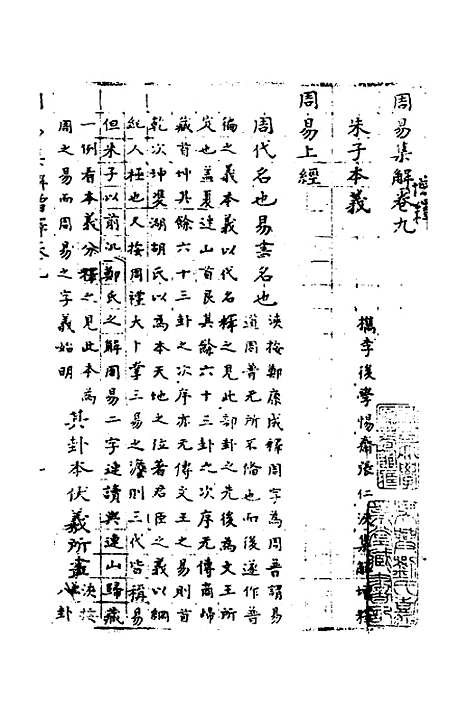 周易集解增釋卷九
朱子本義
檇李後學惕齋張仁浹集解增釋
周易上經
周代名也易書名也
浹按鄭康成釋周字為周普謂易
道周普无所不備也而後遂作普
徧之義本義以代名釋之見此部卦之先後為文王所
定也蓋夏連山首艮其餘六十三卦之次序无傳商歸
藏首坤其餘六十三卦之次序亦无傳文王之易則首
乾次坤雙湖胡氏以為本天地之位著君臣之義以綱
紀人極也又按周禮大卜掌三易之灋則三代皆稱易
但朱子以前汎鄭氏之解周易二字連讀與連山歸藏
一例看本義分釋之見此本為
周之易而周易之字義始明
其卦本伏羲所畫
浹按
八卦